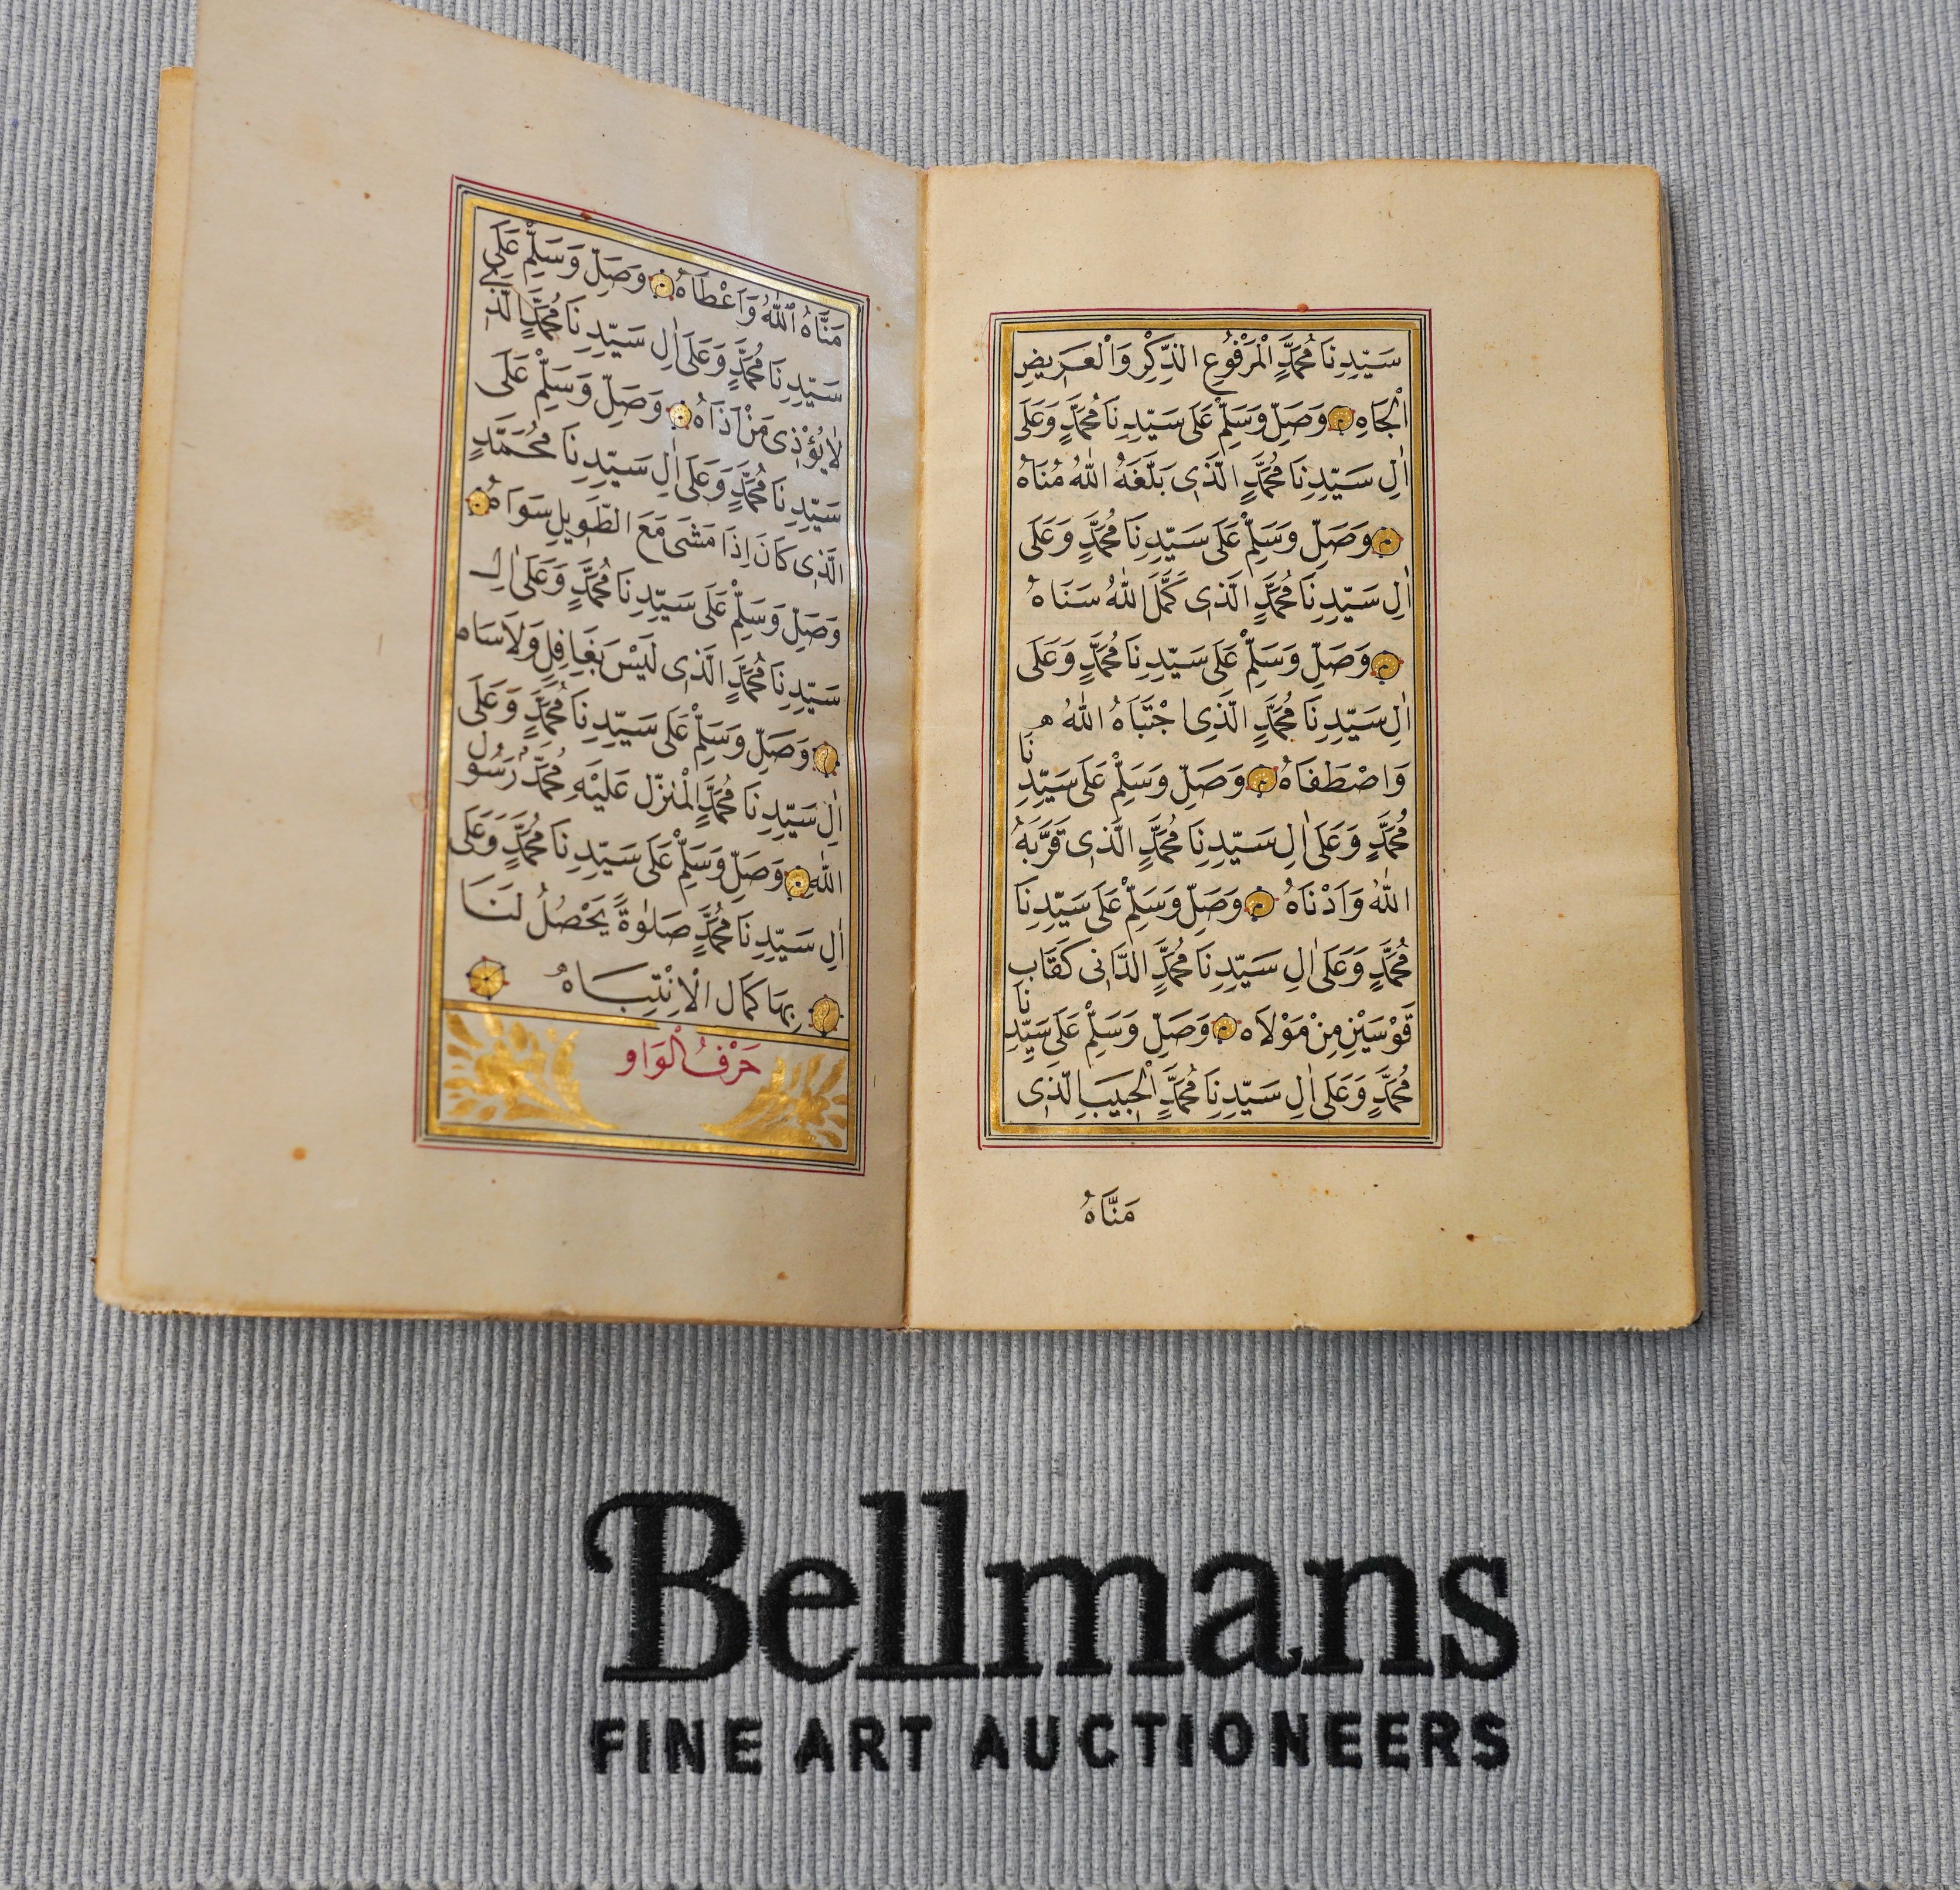 سَيِّدِنَا مُحَمَّدٍ الْمَرْفُوعِ الذِّكْرِ وَالْعَرِيضِ
الْجَاهِ وَصَلِّ وَسَلِّمْ عَلَى سَيِّدِنَا مُحَمَّدٍ وَعَلَى
اٰلِ سَيِّدِنَا مُحَمَّدٍ الَّذِى بَلَّغَهُ اللهُ مُنَاهُ
وَصَلِّ وَسَلِّمْ عَلَى سَيِّدِنَا مُحَمَّدٍ وَعَلَى
اٰلِ سَيِّدِنَا مُحَمَّدٍ الَّذِى كَمَّلَ اللهُ سَنَاهُ
وَصَلِّ وَسَلِّمْ عَلَى سَيِّدِنَا مُحَمَّدٍ وَعَلَى
اٰلِ سَيِّدِنَا مُحَمَّدٍ الَّذِى اجْتَبَاهُ اللهُ
وَاصْطَفَاهُ وَصَلِّ وَسَلِّمْ عَلَى سَيِّدِنَا
مُحَمَّدٍ وَعَلَى اٰلِ سَيِّدِنَا مُحَمَّدٍ الَّذِى قَرَّبَهُ
اللهُ وَاَدْنَاهُ وَصَلِّ وَسَلِّمْ عَلَى سَيِّدِنَا
مُحَمَّدٍ وَعَلَى اٰلِ سَيِّدِنَا مُحَمَّدٍ الدَّانِى كَقَابِ
قَوْسَيْنِ مِنْ مَوْلَاهُ وَصَلِّ وَسَلِّمْ عَلَى سَيِّدِنَا
مُحَمَّدٍ وَعَلَى اٰلِ سَيِّدِنَا مُحَمَّدٍ الْحَبِيبِ الَّذِى
مَنَّاهُ
مَنَّاهُ اللهُ وَاَعْطَاهُ وَصَلِّ وَسَلِّمْ عَلَى
سَيِّدِنَا مُحَمَّدٍ وَعَلَى اٰلِ سَيِّدِنَا مُحَمَّدٍ الَّذِى
لَا يُؤْذِى مَنْ اٰذَاهُ وَصَلِّ وَسَلِّمْ عَلَى
سَيِّدِنَا مُحَمَّدٍ وَعَلَى اٰلِ سَيِّدِنَا مُحَمَّدٍ
الَّذِى كَانَ اِذَا مَشَى مَعَ الطَّوِيلِ سَوَاهُ
وَصَلِّ وَسَلِّمْ عَلَى سَيِّدِنَا مُحَمَّدٍ وَعَلَى اٰلِ
سَيِّدِنَا مُحَمَّدٍ الَّذِى لَيْسَ بِغَافِلٍ وَلَا سَاهٍ
وَصَلِّ وَسَلِّمْ عَلَى سَيِّدِنَا مُحَمَّدٍ وَعَلَى
اٰلِ سَيِّدِنَا مُحَمَّدٍ الْمُنَزَّلِ عَلَيْهِ مُحَمَّدٌ رَسُولُ
اللهِ وَصَلِّ وَسَلِّمْ عَلَى سَيِّدِنَا مُحَمَّدٍ وَعَلَى
اٰلِ سَيِّدِنَا مُحَمَّدٍ صَلٰوةً يَحْصُلُ لَنَا
بِهَا كَمَالُ الْاِنْتِبَاهُ
حَرْفُ الْوَاو
Bellmans
FINE ART AUCTIONEERS